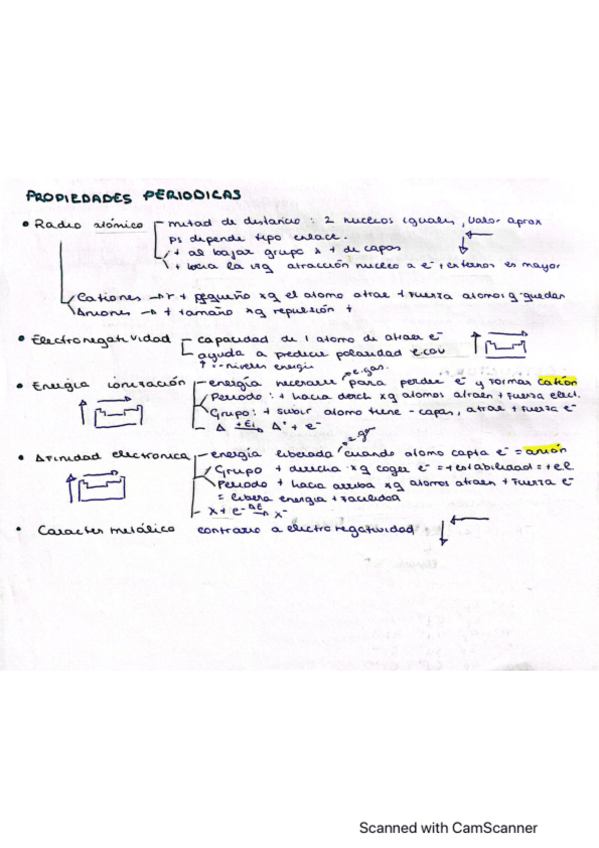 PROPIEDADES PERIODICAS
• Radio atómico mitad de distancia : 2 nucleos iguales, valor aprox
ps depende tipo enlace.
+ al bajar grupo x + de capas
+ hacia la izq atracción nucleo a e⁻ + externos es mayor
Cationes → r + pequeño xq el atomo atrae + fuerza atomos q quedan
Aniones → + tamaño xq repulsión +
• Electronegatividad capacidad de 1 atomo de atraer e⁻
ayuda a predecir polaridad e.cov
↑ · - niveles energia
e.gas.
• Energia ionización energía necesaria para perder e⁻ y formar catión
Periodo : + hacia derch xq atomos atraen + fuerza elect.
Grupo : + subir atomo tiene - capas, atrae + fuerza e⁻
A +EI → A⁺ + e⁻
• Afinidad electronica energía liberada cuando atomo capta e⁻ = anión
Grupo + derecha xq coger e⁻ = + estabilidad = + e.l.
Periodo + hacia arriba xq atomos atraen + fuerza e⁻
= libera energia + facilidad
X + e⁻ AE → X⁻
• Caracter metálico contrario a electronegatividad
Scanned with CamScanner